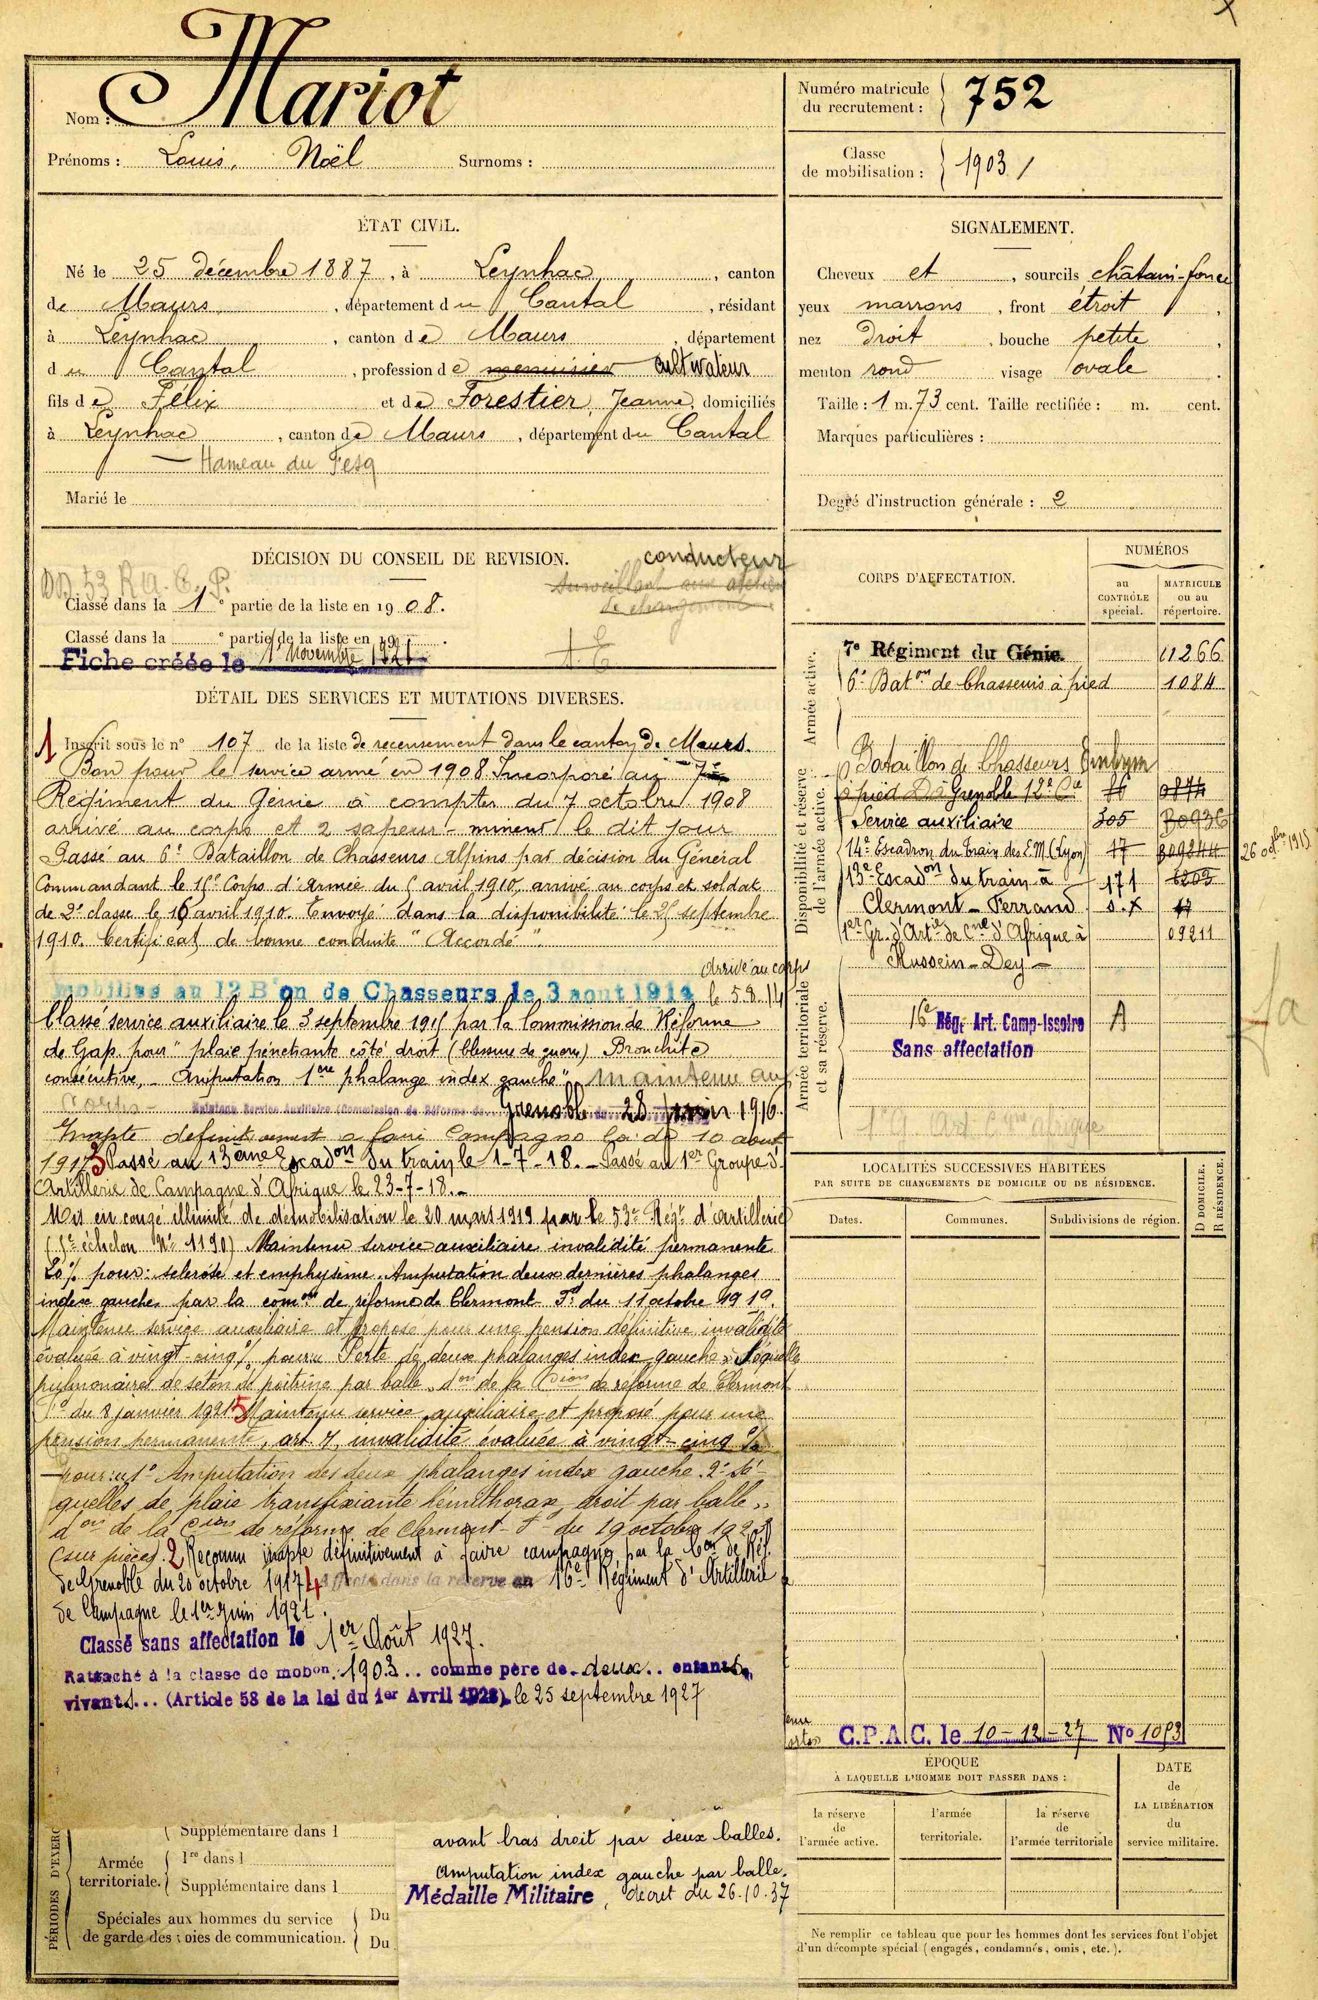 Nom : Mariot
Prénoms : Louis, Noël Surnoms :
Numéro matricule
du recrutement : 752
Classe
de mobilisation : 1903
ÉTAT CIVIL.
Né le 25 décembre 1887, à Leynhac, canton
de Maurs, département du Cantal, résidant
à Leynhac, canton de Maurs, département
du Cantal, profession de menuisier cultivateur
fils de Félix et de Forestier, Jeanne, domiciliés
à Leynhac, canton de Maurs, département du Cantal
— Hameau du Fesq
Marié le
SIGNALEMENT.
Cheveux et, sourcils châtain-foncé
yeux marrons, front étroit,
nez droit, bouche petite,
menton rond visage ovale.
Taille : 1 m. 73 cent. Taille rectifiée : m. cent.
Marques particulières :
Degré d'instruction générale : 2
DÉCISION DU CONSEIL DE REVISION.
conducteur
surveillant aux
de chargement
Classé dans la 1e partie de la liste en 1908.
Classé dans la e partie de la liste en 19 .
Fiche créée le 1 novembre 1921
DÉTAIL DES SERVICES ET MUTATIONS DIVERSES.
1 Inscrit sous le n° 107 de la liste de recensement dans le canton de Maurs.
Bon pour le service armé en 1908. Incorporé au 7e
Régiment du Génie à compter du 7 octobre 1908
arrivé au corps et 2 sapeur-mineur le dit jour
Passé au 6e Bataillon de Chasseurs Alpins par décision du Général
Commandant le 15e Corps d'Armée du 5 avril 1910, arrivé au corps et soldat
de 2e classe le 16 avril 1910. Envoyé dans la disponibilité le 25 septembre
1910. Certificat de bonne conduite "Accordé".
Arrivé au corps
mobilisé au 12 B'on de Chasseurs le 3 aout 1914 le 5.8.14
Classé service auxiliaire le 3 septembre 1915 par la Commission de Réforme
de Gap pour "plaie pénétrante côté droit (blessure de guerre) Bronchite
consécutive, - Amputation 1ère phalange index gauche". Maintenu au
Corps - Maintenu Service Auxiliaire (Commission de Réforme de Grenoble du 28 juin 1916
Inapte définitivement à faire Campagne le 10 aout
1917 3 Passé au 13ème Escadon du train le 1-7-18. - Passé au 1er Groupe d'
Artillerie de Campagne d'Afrique le 23-7-18. -
Mis en congé illimité de démobilisation le 20 mars 1919 par le 53e Régt d'artillerie
(5e échelon N° 1190) Maintenu service auxiliaire invalidité permanente
20% pour : sclérose et emphysème. Amputation deux dernières phalanges
index gauche par la comon de réforme de Clermont Fd du 11 octobre 1919.
Maintenu service auxiliaire et proposé pour une pension définitive invalidité
évaluée à vingt-cinq % pour : Perte de deux phalanges index gauche. Séquelles
pulmonaires de séton de poitrine par balle. don de la Cion de réforme de Clermont
Fd du 8 janvier 1921 5 Maintenu service auxiliaire et proposé pour une
pension permanente, art 7, invalidité évaluée à vingt-cinq %
pour : 1° Amputation des deux phalanges index gauche. 2° Sé-
quelles de plaie transfixiante hémithorax droit par balle"
don de la Cion de réforme de Clermont-Fd du 19 octobre
(sur pièces). 2 Reconnu inapte définitivement à faire campagne par la Con de Réf.
de Grenoble du 20 octobre 1917 4 Affecté dans la réserve au 16e Régiment d'Artillerie
de Campagne le 1er Juin 1921.
Classé sans affectation le 1er Août 1927.
Rattaché à la classe de mobon. 1903.. comme père de deux.. enfants
vivants... (Article 58 de la loi du 1er Avril 1923) le 25 septembre 1927
CORPS D'AFFECTATION.
NUMÉROS
au
CONTRÔLE
spécial.
MATRICULE
ou au
répertoire.
Armée active.
7e Régiment du Génie. 11266
6e Baton de Chasseurs à pied 1084
Disponibilité et réserve
de l'armée active.
Bataillon de Chasseurs
à pied D à Grenoble 12e Cie
Service auxiliaire 305
14e Escadron du train des E.M. (Lyon) 17
26 octobre 1915
13e Escadon du train à 171 6203
Clermont-Ferrand s.x
1er Gr. d'Artie de Cne d'Afrique à 09211
Hussein-Dey -
Armée territoriale
et sa réserve.
16e Régt Art. Camp-Issoire A
Sans affectation
1er G Art. Cgne afrique
LOCALITÉS SUCCESSIVES HABITÉES
PAR SUITE DE CHANGEMENTS DE DOMICILE OU DE RÉSIDENCE.
Dates. Communes. Subdivisions de région.
D DOMICILE.
R RÉSIDENCE.
C.P.A.C. le 10-12-27 No 1093
ÉPOQUE
À LAQUELLE L'HOMME DOIT PASSER DANS :
la réserve
de
l'armée active.
l'armée
territoriale.
la réserve
de
l'armée territoriale
DATE
de
LA LIBÉRATION
du
service militaire.
Ne remplir ce tableau que pour les hommes dont les services font l'objet
d'un décompte spécial (engagés, condamnés, omis, etc.).
PÉRIODES D'EXERC
Armée
territoriale.
Supplémentaire dans l
1re dans l
Supplémentaire dans l
Spéciales aux hommes du service
de garde des voies de communication.
Du
Du
avant bras droit par deux balles.
Amputation index gauche par balle.
Médaille Militaire, décret du 26.10.37